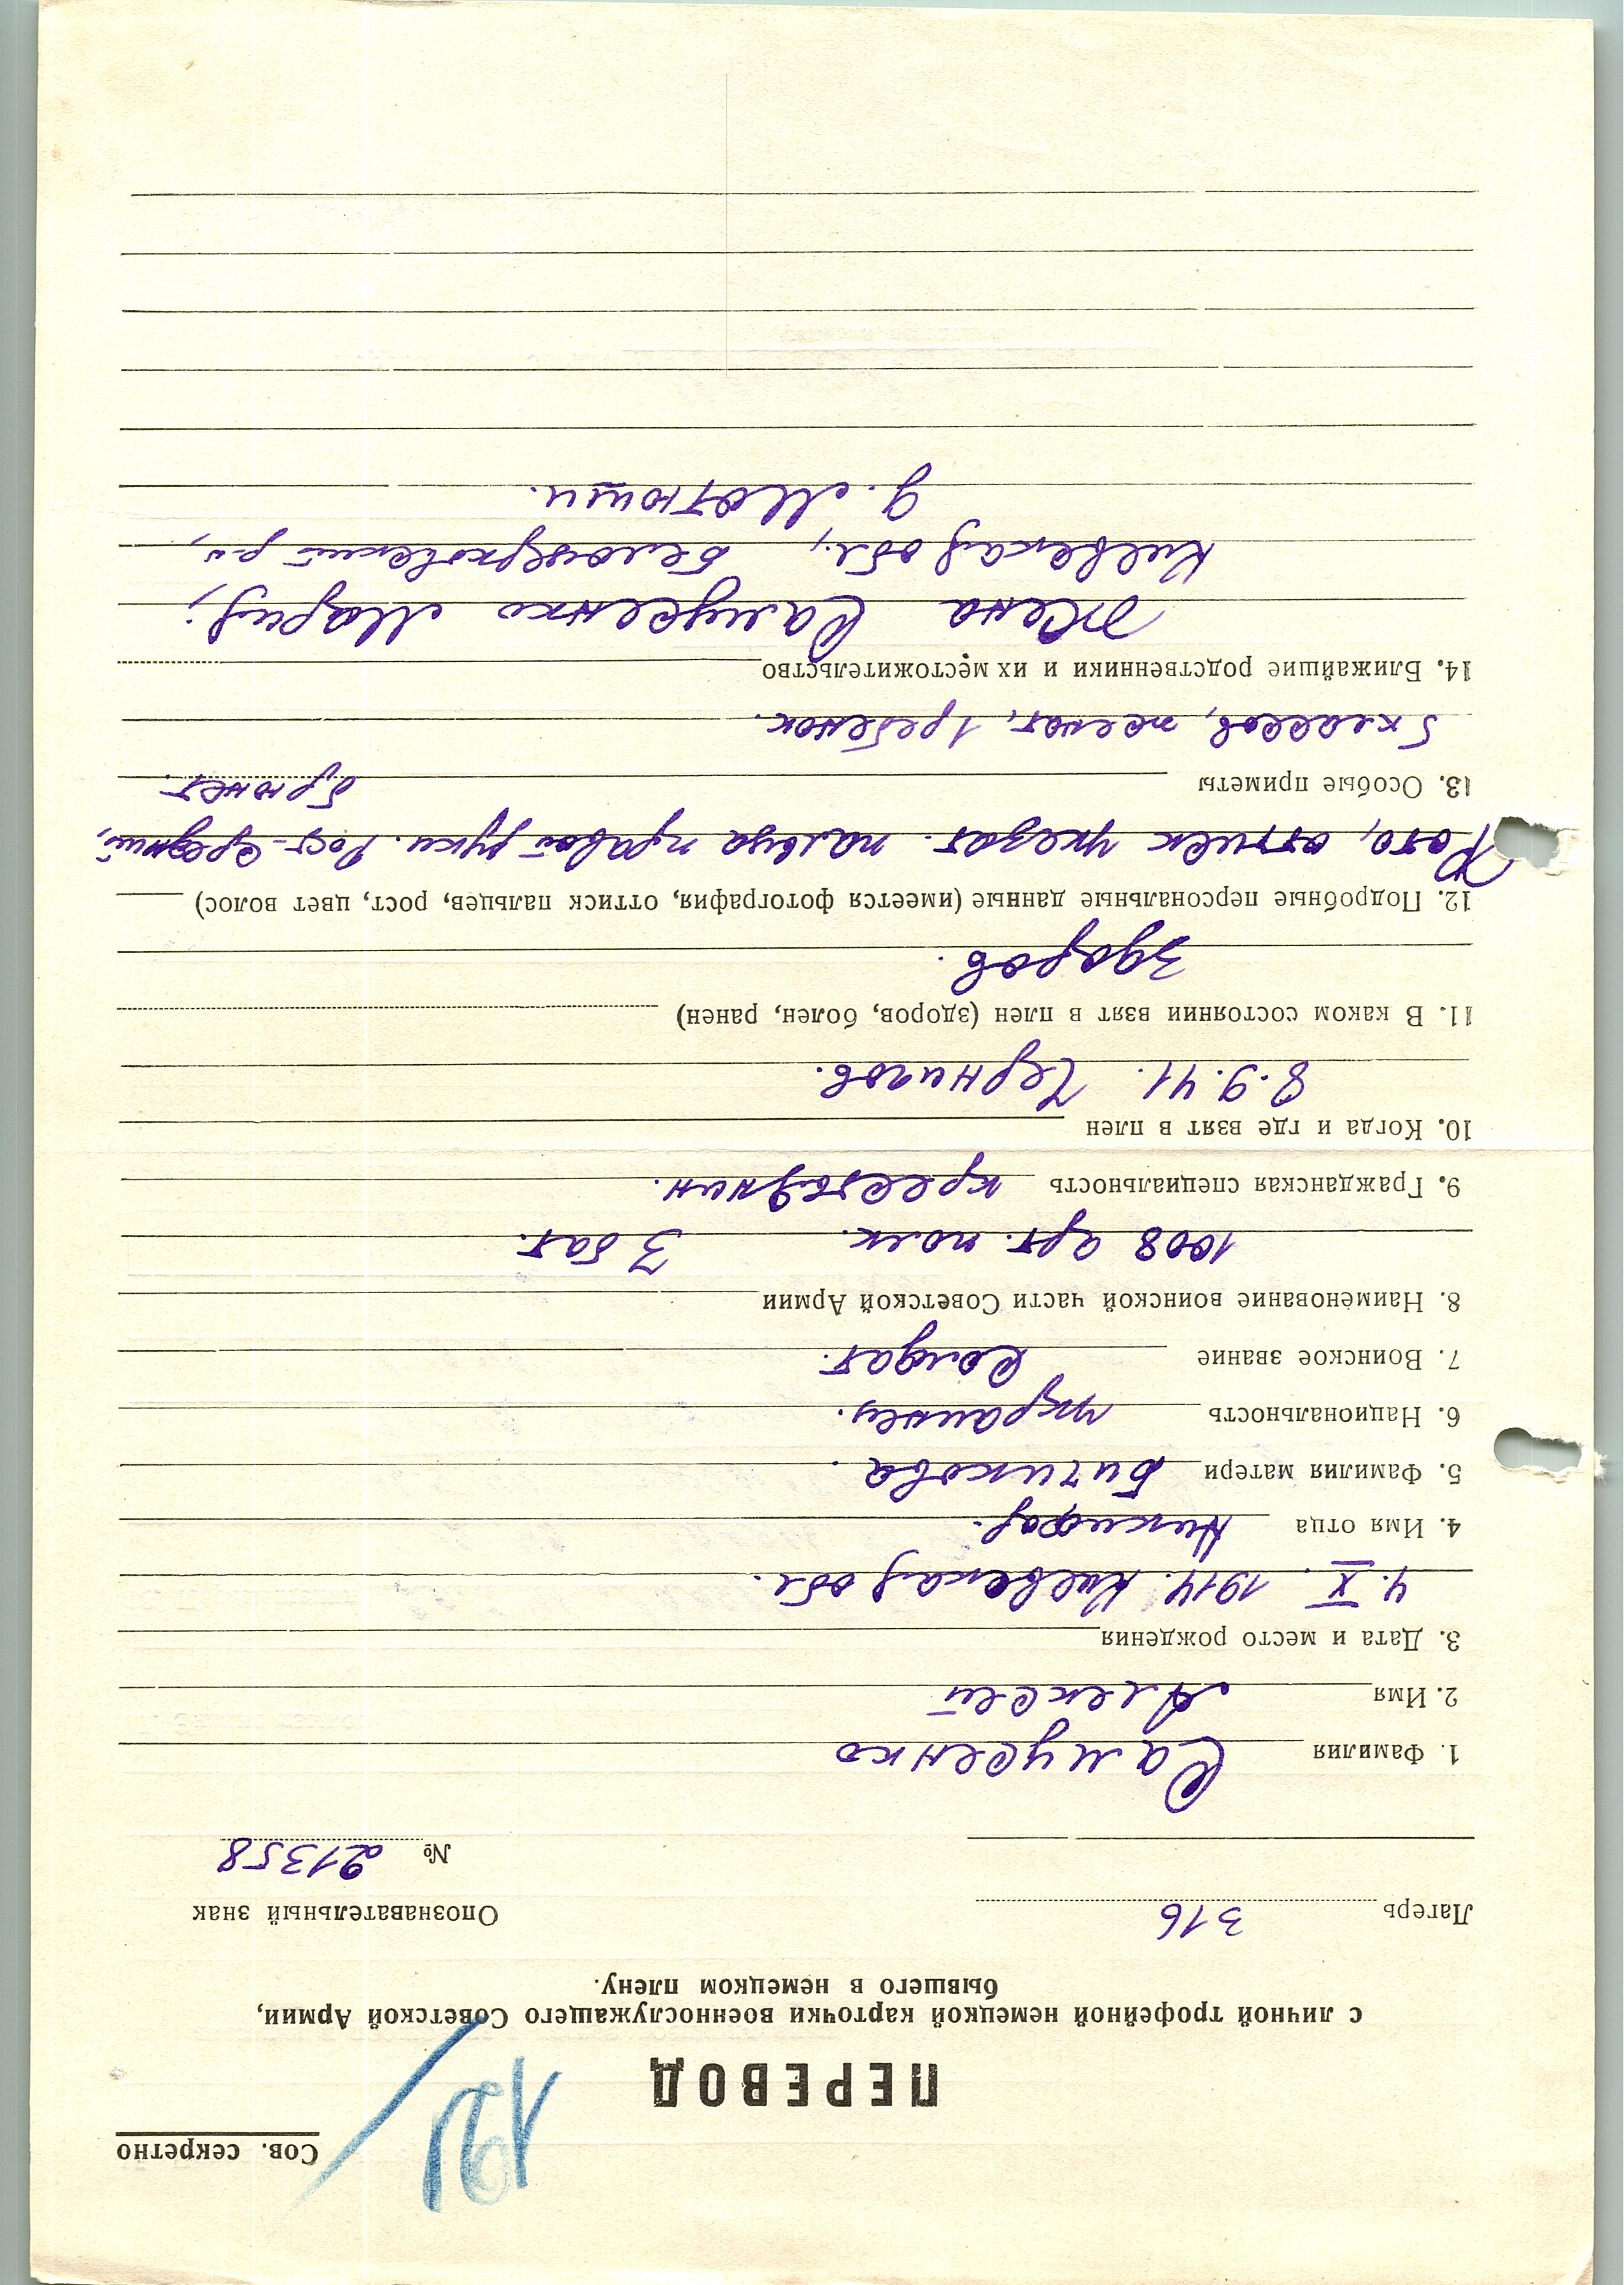 Сов. секретно
ПЕРЕВОД
с личной трофейной немецкой карточки военнослужащего Советской Армии,
бывшего в немецком плену.
Лагерь 316 Опознавательный знак
№ 21358
1. Фамилия Самусенко
2. Имя Алексей
3. Дата и место рождения
4. X. 1914. Киевская обл.
4. Имя отца Никифор.
5. Фамилия матери Бичикова.
6. Национальность украинец.
7. Воинское звание Солдат.
8. Наименование воинской части Советской Армии
1008 арт. полк. 3 бат.
9. Гражданская специальность крестьянин.
10. Когда и где взят в плен
8.9.41. Чернигов.
11. В каком состоянии взят в плен (здоров, болен, ранен)
Здоров.
12. Подробные персональные данные (имеется фотография, оттиск пальцев, рост, цвет волос)
Фото, оттиск указат. пальца правой руки. Рост-средний,
брюнет.
13. Особые приметы
5 классов, женат, 1 ребенок.
14. Ближайшие родственники и их местожительство
Жена Самусенко Мария;
Киевская обл., Белоцерковский р-н,
д. Матюши.